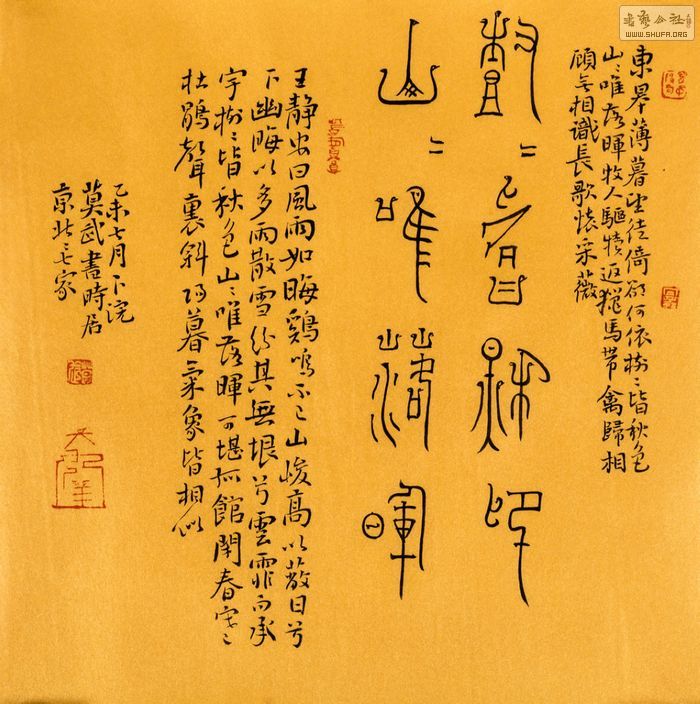 書藝公社
WWW.SHUFA.ORG
東皋薄暮望徙倚欲何依樹〻皆秋色
山〻唯落暉牧人驅犢返獵馬帶禽歸相
顧無相識長歌懷采薇
樹〻皆秋色
山〻唯落暉
王静安曰風雨如晦鷄鳴不已山峻高以蔽日兮
下幽晦以多雨散雪紛其無垠兮雲霏而承
宇樹〻皆秋色山〻唯落暉可堪孤館閉春寒〻
杜鵑聲裏斜陽暮氣象皆相似
乙未七月下浣
莫武書時居
京北七家